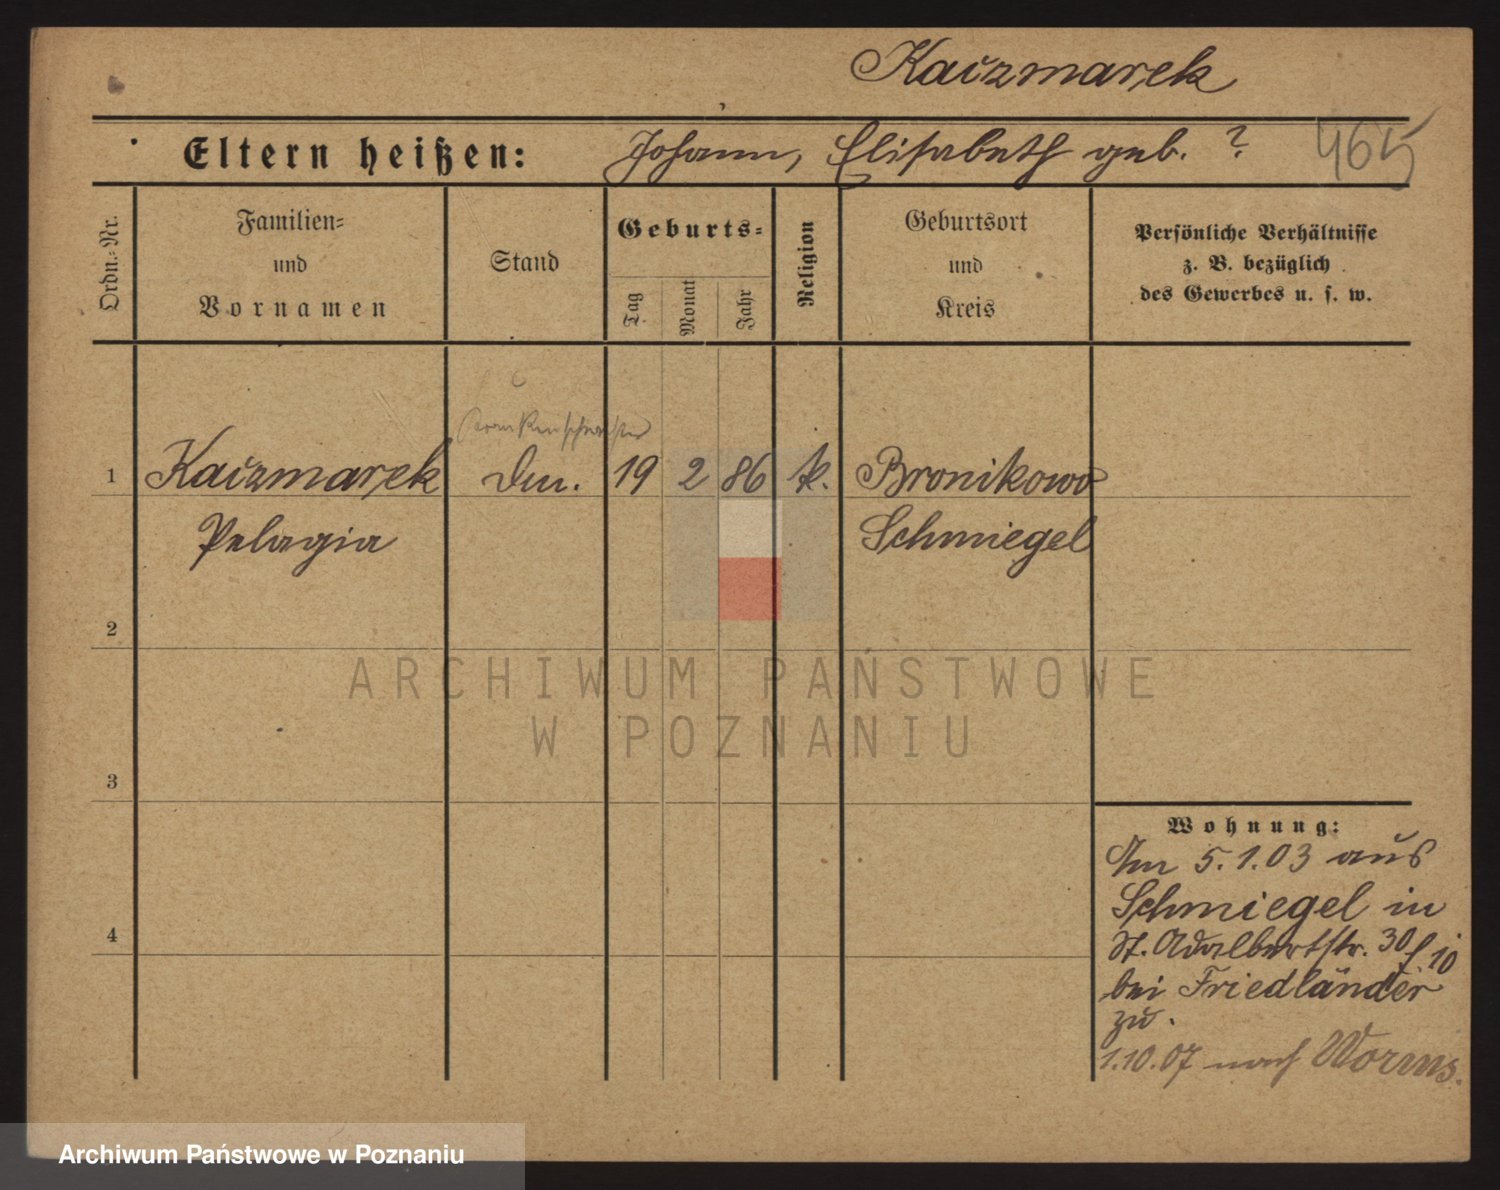 Kaczmarek
Eltern heißen: Johann, Elisabeth geb. ?
465
Ordn.-Nr.
Familien-
und
Vornamen
Stand
Geburts-
Tag
Monat
Jahr
Religion
Geburtsort
und
Kreis
Persönliche Verhältnisse
z. B. bezüglich
des Gewerbes u. s. w.
Krankenschwester
1 Kaczmarek 19 2 86 k. Bronikowo
Pelagia Schmiegel
2
3
4
ARCHIWUM PAŃSTWOWE
W POZNANIU
Wohnung:
Am 5.1.03 aus
Schmiegel in
St. Adalbertstr. 30/10
bei Friedländer
zu.
1.10.07 nach Worms.
Archiwum Państwowe w Poznaniu